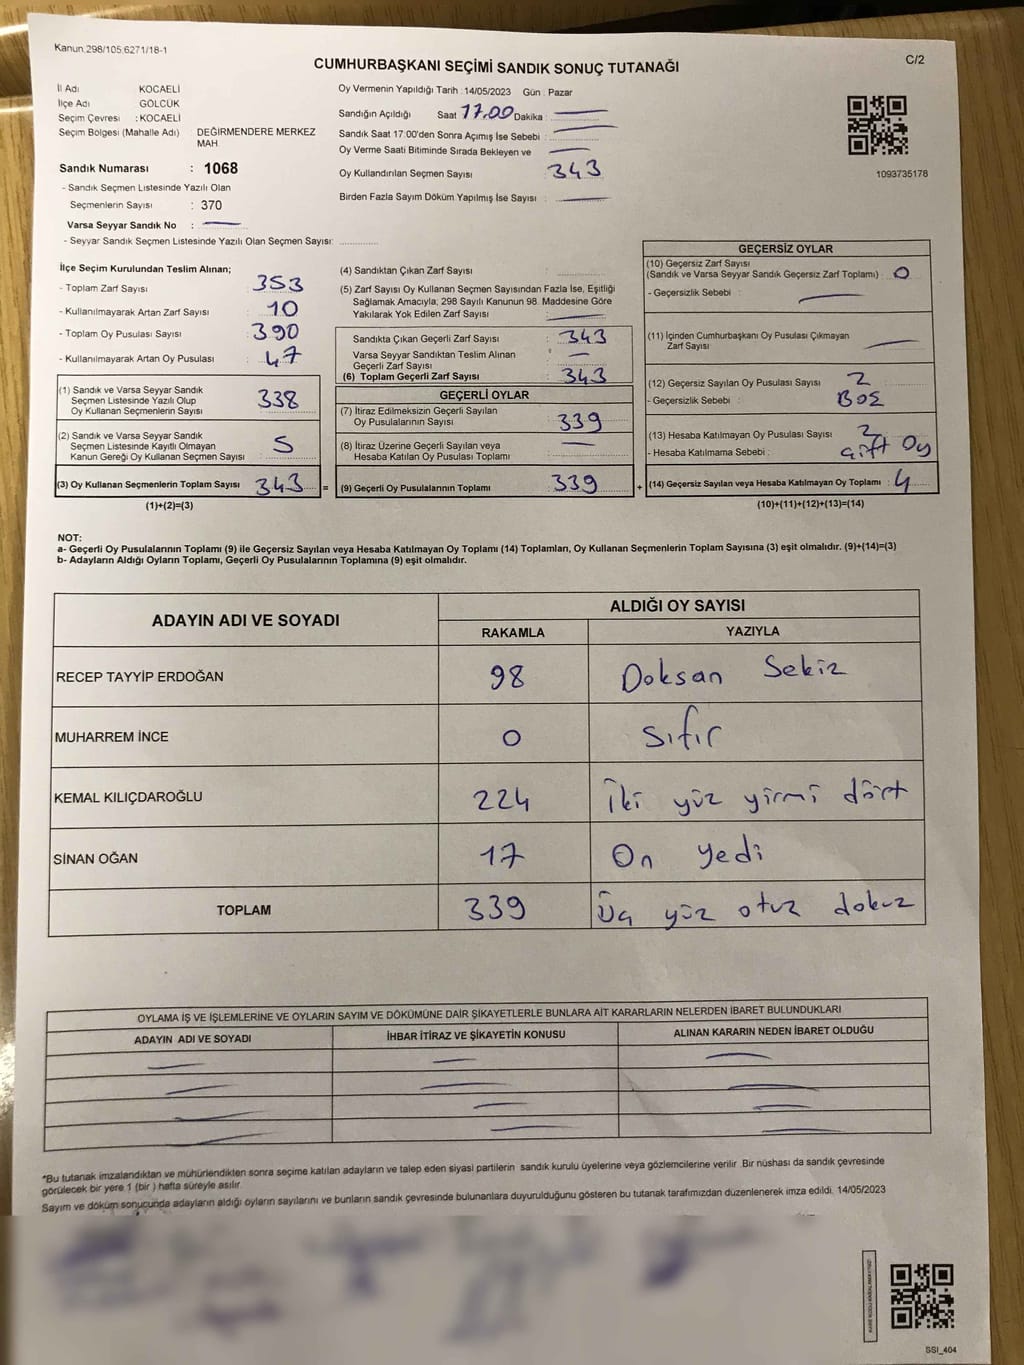 Kanun.298/105.6271/18-1
C/2
CUMHURBAŞKANI SEÇİMİ SANDIK SONUÇ TUTANAĞI
İl Adı KOCAELİ
İlçe Adı GÖLCÜK
Seçim Çevresi : KOCAELİ
Seçim Bölgesi (Mahalle Adı) DEĞİRMENDERE MERKEZ MAH.
Sandık Numarası : 1068
- Sandık Seçmen Listesinde Yazılı Olan
Seçmenlerin Sayısı : 370
Varsa Seyyar Sandık No :
- Seyyar Sandık Seçmen Listesinde Yazılı Olan Seçmen Sayısı:
Oy Vermenin Yapıldığı Tarih : 14/05/2023 Gün : Pazar
Sandığın Açıldığı Saat 17.00 Dakika :
Sandık Saat 17:00'den Sonra Açımış İse Sebebi :
Oy Verme Saati Bitiminde Sırada Bekleyen ve
Oy Kullandırılan Seçmen Sayısı 343
Birden Fazla Sayım Döküm Yapılmış İse Sayısı :
1093735178
İlçe Seçim Kurulundan Teslim Alınan;
- Toplam Zarf Sayısı : 353
- Kullanılmayarak Artan Zarf Sayısı : 10
- Toplam Oy Pusulası Sayısı : 390
- Kullanılmayarak Artan Oy Pusulası : 47
(1) Sandık ve Varsa Seyyar Sandık
Seçmen Listesinde Yazılı Olup
Oy Kullanan Seçmenlerin Sayısı : 338
(2) Sandık ve Varsa Seyyar Sandık
Seçmen Listesinde Kayıtlı Olmayan
Kanun Gereği Oy Kullanan Seçmen Sayısı : 5
(3) Oy Kullanan Seçmenlerin Toplam Sayısı : 343 =
(1)+(2)=(3)
(4) Sandıktan Çıkan Zarf Sayısı :
(5) Zarf Sayısı Oy Kullanan Seçmen Sayısından Fazla İse, Eşitliği
Sağlamak Amacıyla; 298 Sayılı Kanunun 98. Maddesine Göre
Yakılarak Yok Edilen Zarf Sayısı :
Sandıkta Çıkan Geçerli Zarf Sayısı : 343
Varsa Seyyar Sandıktan Teslim Alınan
Geçerli Zarf Sayısı :
(6) Toplam Geçerli Zarf Sayısı : 343
GEÇERLİ OYLAR
(7) İtiraz Edilmeksizin Geçerli Sayılan
Oy Pusulalarının Sayısı : 339
(8) İtiraz Üzerine Geçerli Sayılan veya
Hesaba Katılan Oy Pusulası Toplamı :
(9) Geçerli Oy Pusulalarının Toplamı : 339 +
GEÇERSİZ OYLAR
(10) Geçersiz Zarf Sayısı
(Sandık ve Varsa Seyyar Sandık Geçersiz Zarf Toplamı) : 0
- Geçersizlik Sebebi :
(11) İçinden Cumhurbaşkanı Oy Pusulası Çıkmayan
Zarf Sayısı :
(12) Geçersiz Sayılan Oy Pusulası Sayısı : 2
- Geçersizlik Sebebi : BOŞ
(13) Hesaba Katılmayan Oy Pusulası Sayısı : 2
- Hesaba Katılmama Sebebi : Çift Oy
(14) Geçersiz Sayılan veya Hesaba Katılmayan Oy Toplamı : 4
(10)+(11)+(12)+(13)=(14)
NOT:
a- Geçerli Oy Pusulalarının Toplamı (9) ile Geçersiz Sayılan veya Hesaba Katılmayan Oy Toplamı (14) Toplamları, Oy Kullanan Seçmenlerin Toplam Sayısına (3) eşit olmalıdır. (9)+(14)=(3)
b- Adayların Aldığı Oyların Toplamı, Geçerli Oy Pusulalarının Toplamına (9) eşit olmalıdır.
ADAYIN ADI VE SOYADI ALDIĞI OY SAYISI
RAKAMLA YAZIYLA
RECEP TAYYİP ERDOĞAN 98 Doksan Sekiz
MUHARREM İNCE 0 Sıfır
KEMAL KILIÇDAROĞLU 224 İki yüz yirmi dört
SİNAN OĞAN 17 On yedi
TOPLAM 339 Üç yüz otuz dokuz
OYLAMA İŞ VE İŞLEMLERİNE VE OYLARIN SAYIM VE DÖKÜMÜNE DAİR ŞİKAYETLERLE BUNLARA AİT KARARLARIN NELERDEN İBARET BULUNDUKLARI
ADAYIN ADI VE SOYADI İHBAR İTİRAZ VE ŞİKAYETİN KONUSU ALINAN KARARIN NEDEN İBARET OLDUĞU
*Bu tutanak imzalandıktan ve mühürlendikten sonra seçime katılan adayların ve talep eden siyasi partilerin sandık kurulu üyelerine veya gözlemcilerine verilir. Bir nüshası da sandık çevresinde
görülecek bir yere 1 (bir ) hafta süreyle asılır.
Sayım ve döküm sonucunda adayların aldığı oyların sayılarını ve bunların sandık çevresinde bulunanlara duyurulduğunu gösteren bu tutanak tarafımızdan düzenlenerek imza edildi. 14/05/2023
SSI_404